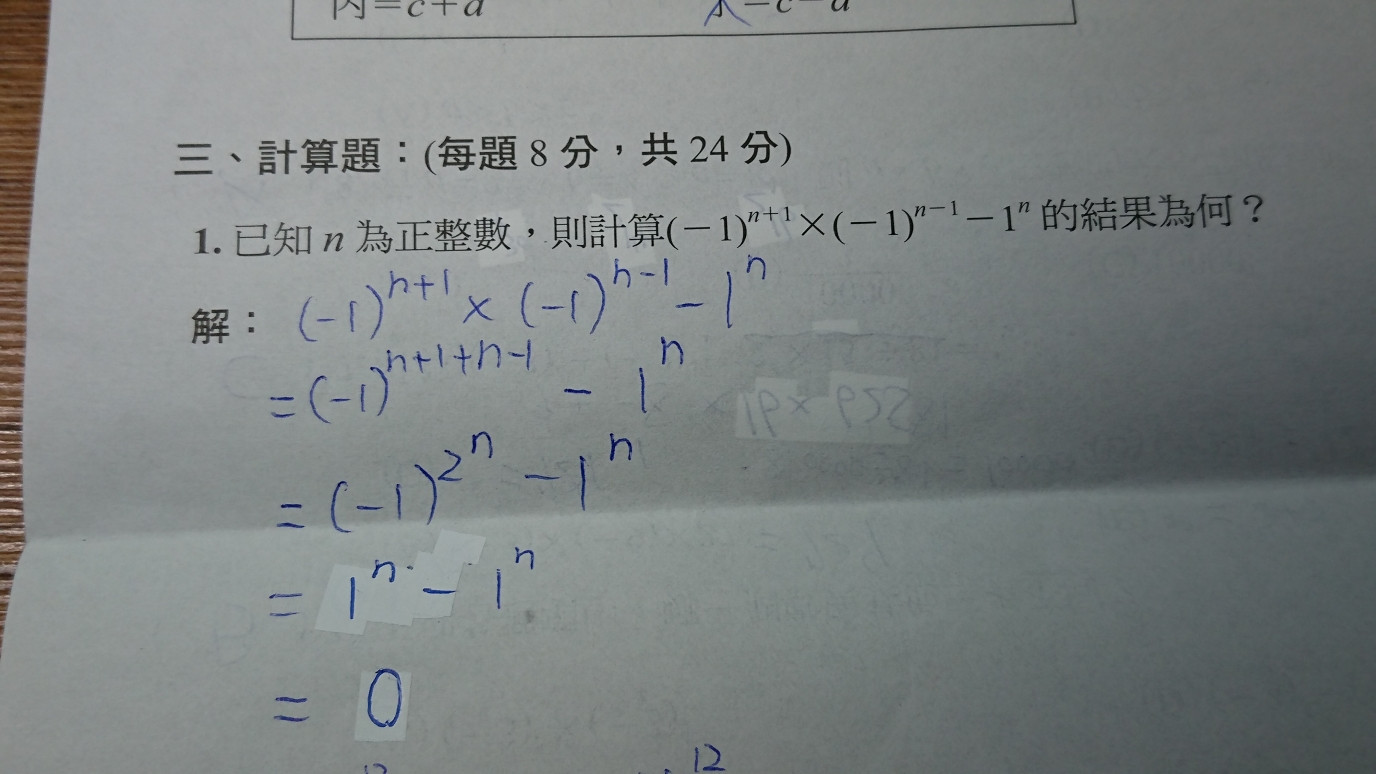 丙=c+a
三、計算題：(每題 8 分，共 24 分)
1. 已知 n 為正整數，則計算(－1)ⁿ⁺¹×(－1)ⁿ⁻¹－1ⁿ 的結果為何？
解： (-1)ⁿ⁺¹ × (-1)ⁿ⁻¹ - 1ⁿ
= (-1)ⁿ⁺¹⁺ⁿ⁻¹ - 1ⁿ
= (-1)²ⁿ - 1ⁿ
= 1ⁿ - 1ⁿ
= 0
12